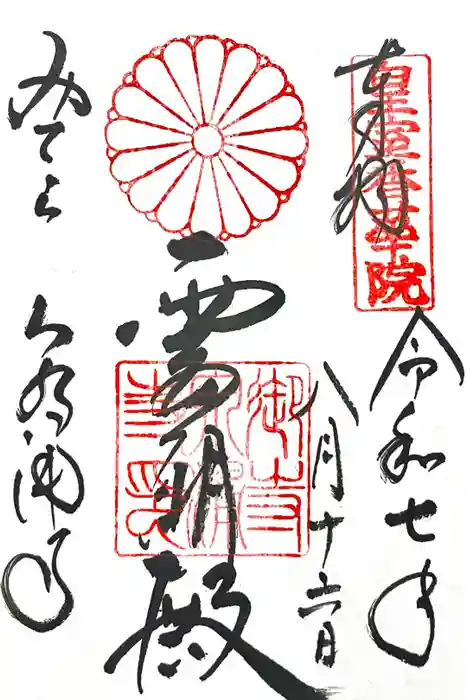 皇室香華院
奉拝
令和七年
八月十六日
霊明殿
御寺
泉涌
寺印
みてら
泉涌寺